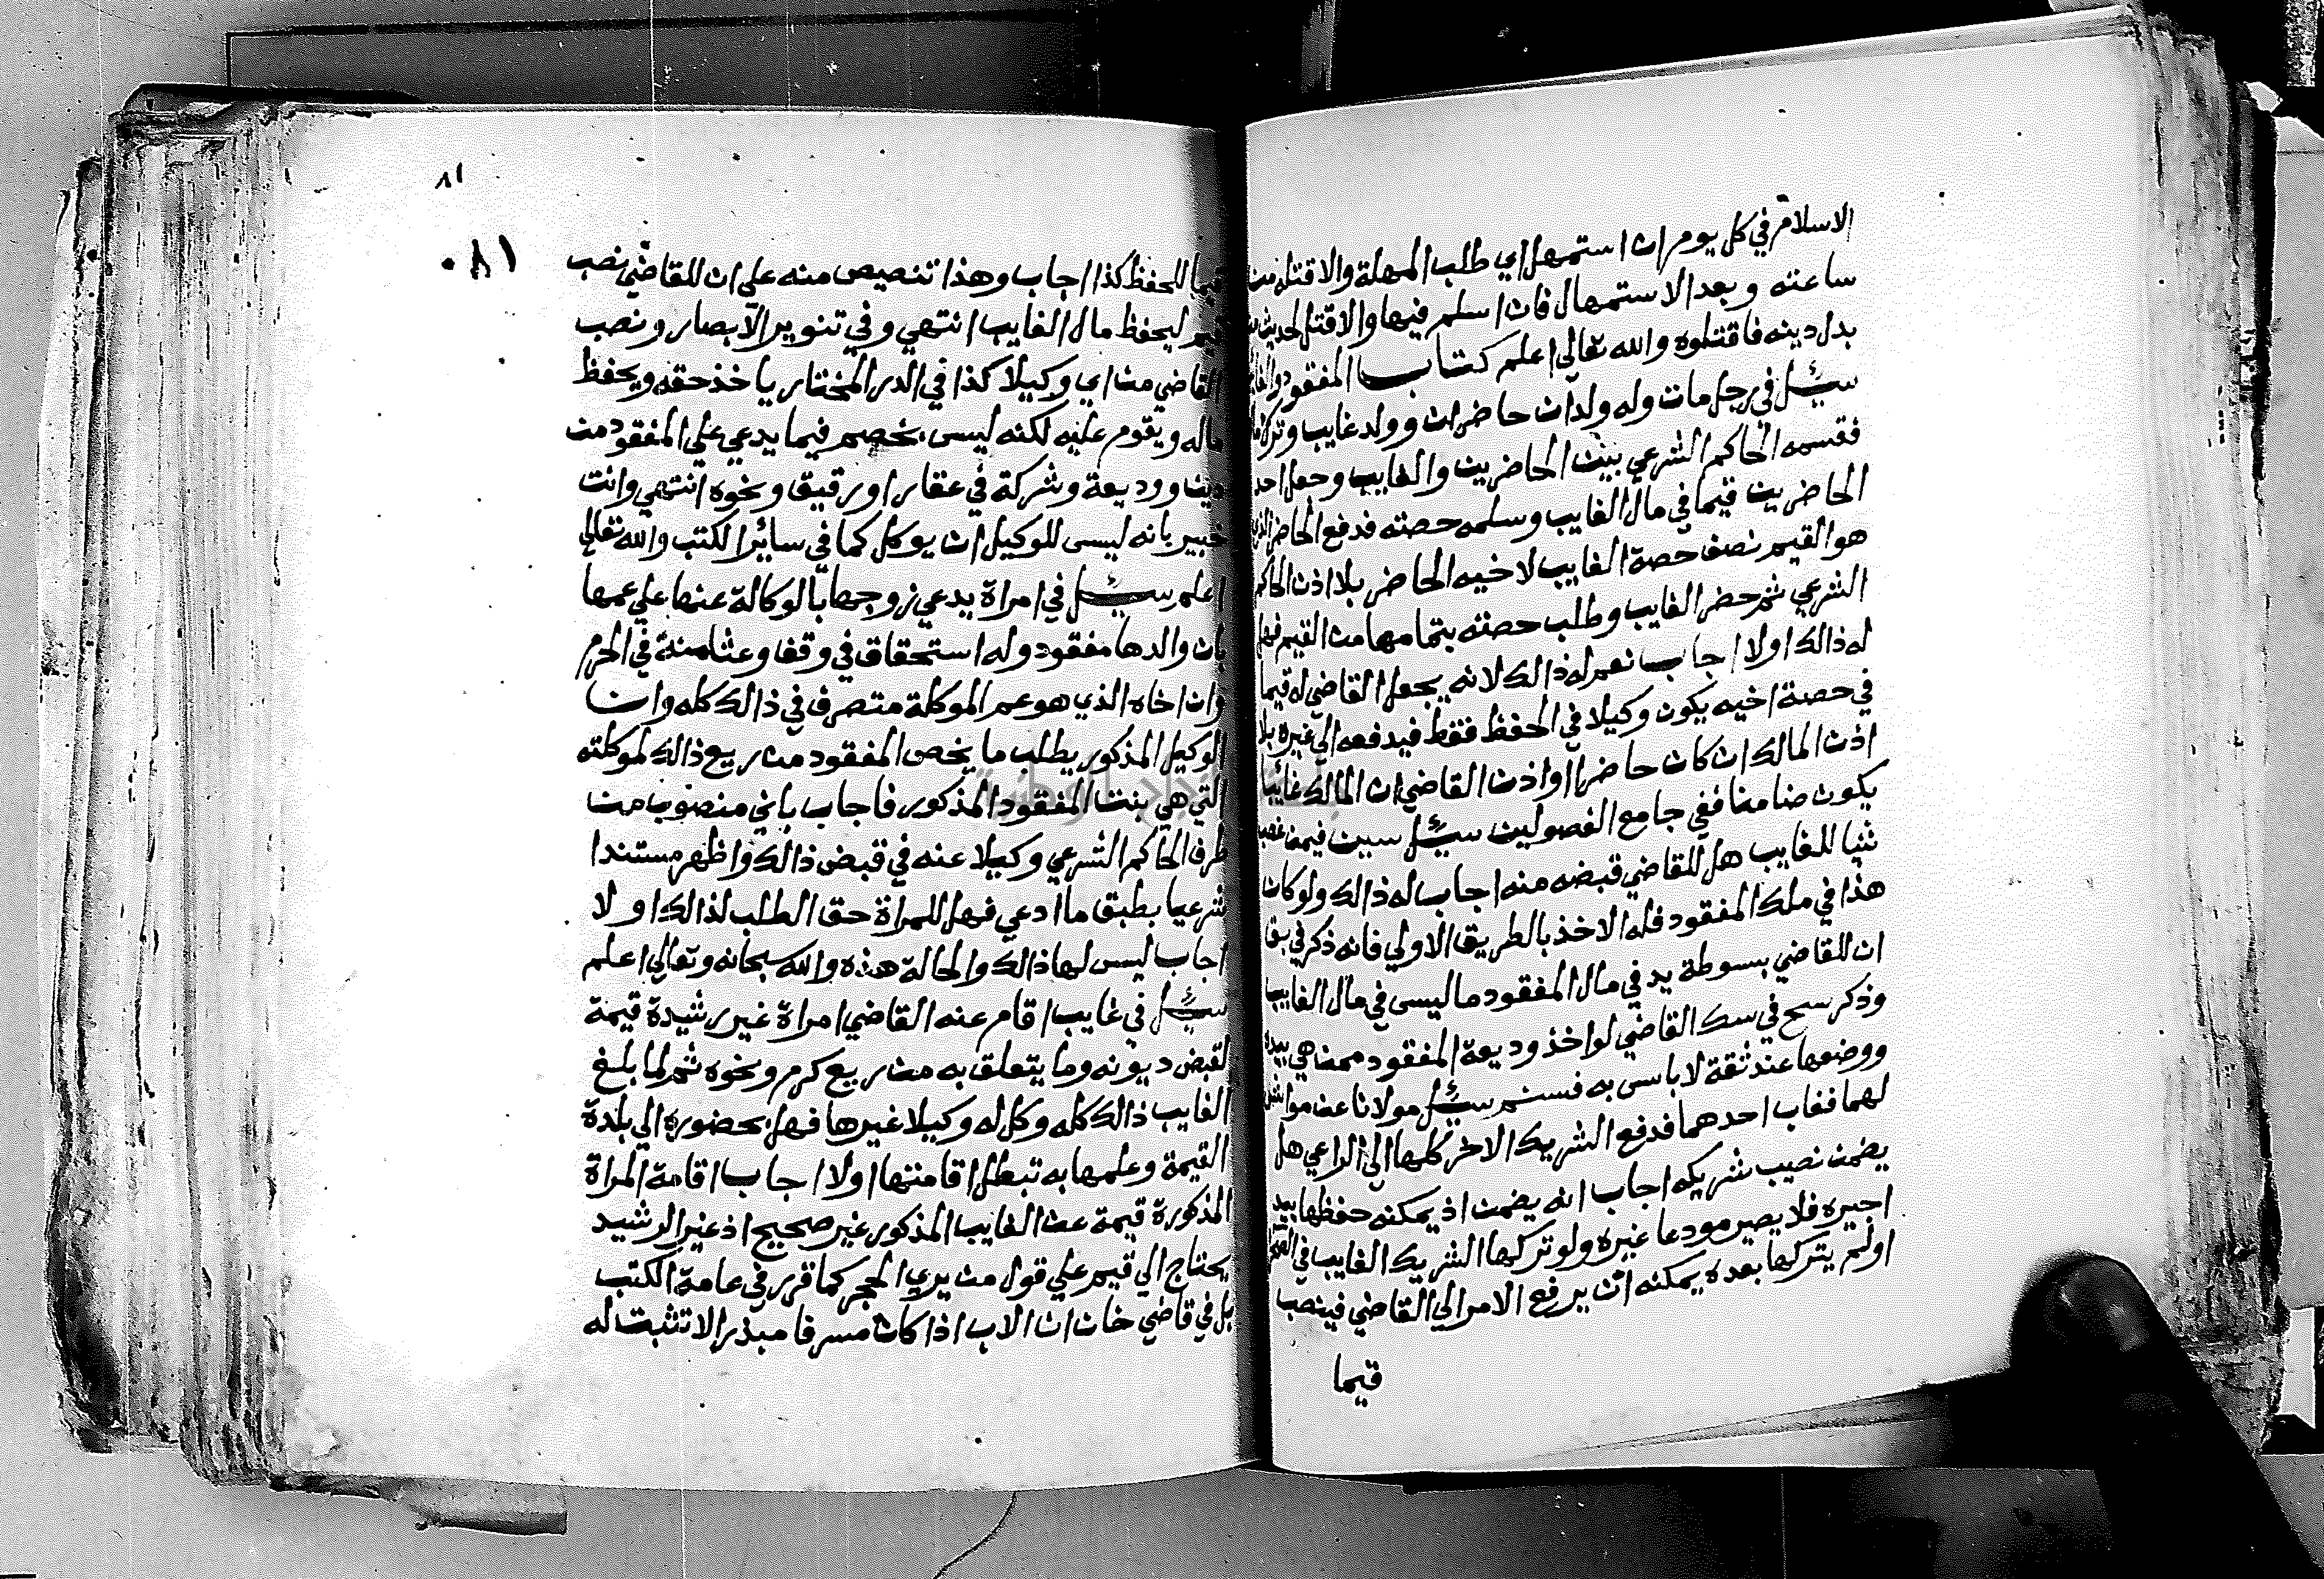 الاسلام في كل يوم ان استمهل اي طلب المهلة والا قتله من
ساعته وبعد الاستمهال فان اسلم فيها والا قتل لحديث من
بدل دينه فاقتلوه والله تعالى اعلم كتاب المفقود
سئل في رجل مات وله ولدان حاضران وولد غايب وترك
فقسمه الحاكم الشرعي بين الحاضرين والغايب وجعل احد
الحاضرين قيما في مال الغايب وسلمه حصته فدفع الحاضر الذي
هو القيم نصف حصة الغايب لاخيه الحاضر بلا اذن الحاكم
الشرعي ثم حضر الغايب وطلب حصته بتمامها من القيم فهل
له ذالك اولا اجاب نعم له ذالك لانه يجعل القاضي له قيما
في حصة اخيه يكون وكيلا في الحفظ فقط فيدفعه الى غيره بلا
اذن المالك ان كان حاضرا او اذن القاضي ان المالك غائبا
يكون ضامنا ففي جامع الفصولين سئل سيت فيمن غصب
شيا للغايب هل للقاضي قبضه منه اجاب له ذالك ولو كان
هذا في ملك المفقود فله الاخذ بالطريق الاولي فانه ذكر في
ان للقاضي بسوطة يد في مال المفقود ما ليس في مال الغايب
وذكر سح في سك القاضي لو اخذ وديعة المفقود ممن هي بيده
ووضعها عند ثقة لا باس به سئل مولانا عن مواشي
لهما فغاب احدهما فدفع الشريك الاخر كلها الى الراعي هل
يضمن نصيب شريكه اجاب انه يضمن اذ يمكنه حفظها بيد
اجيره فلا يصير مودعا غيره ولو تركها الشريك الغايب في
اولم يتركها بعده يمكنه ان يرفع الامر الى القاضي فينصب
قيما
٨١
٨١
قيما للحفظ كذا اجاب وهذا تنصيص منه على ان للقاضي نصب
قيم ليحفظ مال الغايب انتهي وفي تنوير الابصار ونصب
القاضي من اي وكيلا كذا في الدر المختار ياخذ حقه ويحفظ
ماله ويقوم عليه لكنه ليس بخصم فيما يدعي علي المفقود من
دين ووديعة وشركة في عقار او رقيق ونحوه انتهي وانت
خبير بانه ليس للوكيل ان يوكل كما في سائر الكتب والله تعالى
اعلم سئل في امراة يدعي زوجها بالوكالة عنها علي عمها
بان والدها مفقود وله استحقاق في وقف في الحرم
وان اخاه الذي هو عم الموكلة متصرف في ذالك كله وان
الوكيل المذكور يطلب ما يخص المفقود من ريع ذالك لموكلته
التي هي بنت المفقود المذكور فاجاب باني منصوب من
طرف الحاكم الشرعي وكيلا عنه في قبض ذالك واظهر مستندا
شرعيا بطبق ما ادعي فهل للمراة حق الطلب لذالك او لا
اجاب ليس لها ذالك والحالة هذه والله سبحانه وتعالى اعلم
سئل في غايب اقام عنه القاضي امراة غير رشيدة قيمة
لقبض ديونه وما يتعلق به من ريع كرم ونحوه ثم لما بلغ
الغايب ذالك كله وكل له وكيلا غيرها فهل بحضوره الي بلدة
القيمة وعلمها به تبطل اقامتها اولا اجاب اقامة المراة
المذكورة قيمة عن الغايب المذكور غير صحيح اذ غير الرشيد
يحتاج الي قيم علي قول من يري الحجر كما قرر في عامة الكتب
بل في قاضي خان ان الاب اذا كان مسرفا مبذرا لا تثبت له